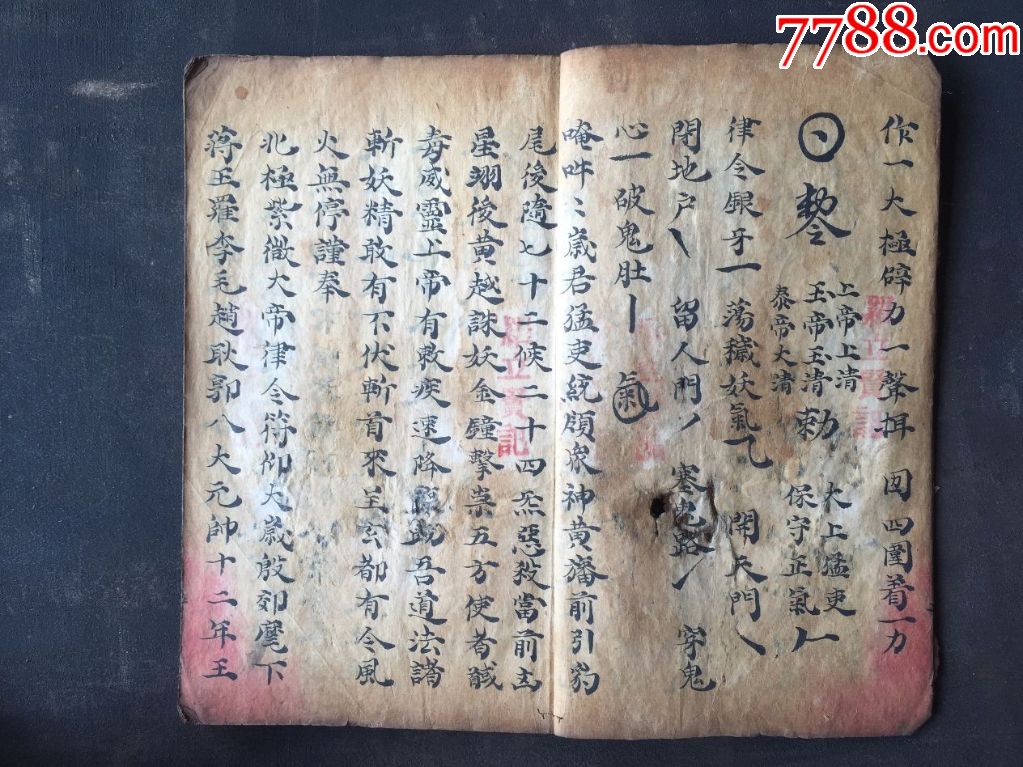 7788.com
作一大極碎力一聲揖 四圍着一力
上帝上清 太上猛吏
玉帝玉清 勅 保守正氣
泰帝太清
律令銀牙一蕩穢妖氣 開天門
閉地户 留人門 塞鬼路 穿鬼
心一破鬼肚 氣
唵吽〻歲君猛吏統領眾神黄旛前引豹
尾後隨七十二候二十四炁惡殺當前
星翊後黄越誅妖金鐘擊祟五方使者
毒威靈上帝有敕疾速降 吾道法諸
斬妖精敢有不伏斬首來呈玄都有令風
火無停謹奉
北極紫微大帝律令符仰太歲殷郊麾下
蒋王羅李毛趙耿郭八大元帥十二年王
羅立賢記
羅立賢記